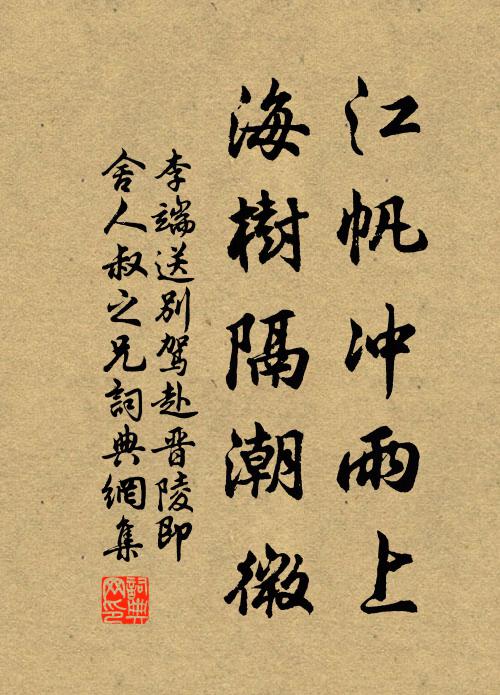 江帆冲雨上
海樹隔潮微
李端送別駕赴晋陵即
舍人叔之兄詞典網集
詞典网印